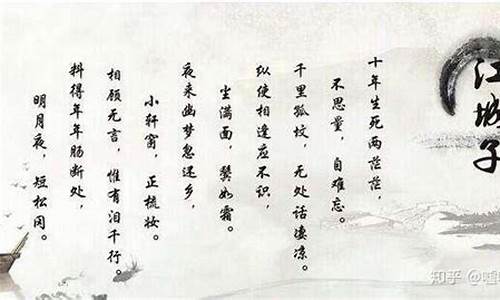 江城子
十年生死两茫茫，
不思量，自难忘。
千里孤坟，无处话凄凉。
纵使相逢应不识，
尘满面，鬓如霜。
夜来幽梦忽还乡，
小轩窗，正梳妆。
相顾无言，惟有泪千行。
料得年年肠断处，
明月夜，短松冈。
知乎